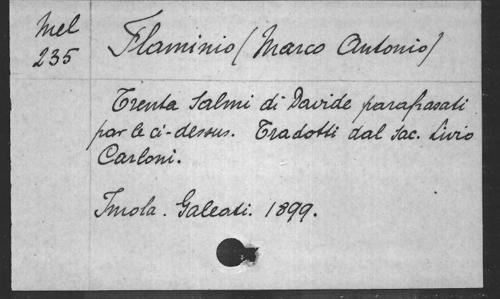 Mel
235
Flaminio (Marco Antonio)
Trenta Salmi di Davide parafrasati
par le ci-dessus. Tradotti dal Sac. Livio
Carloni.
Imola. Galeati. 1899.